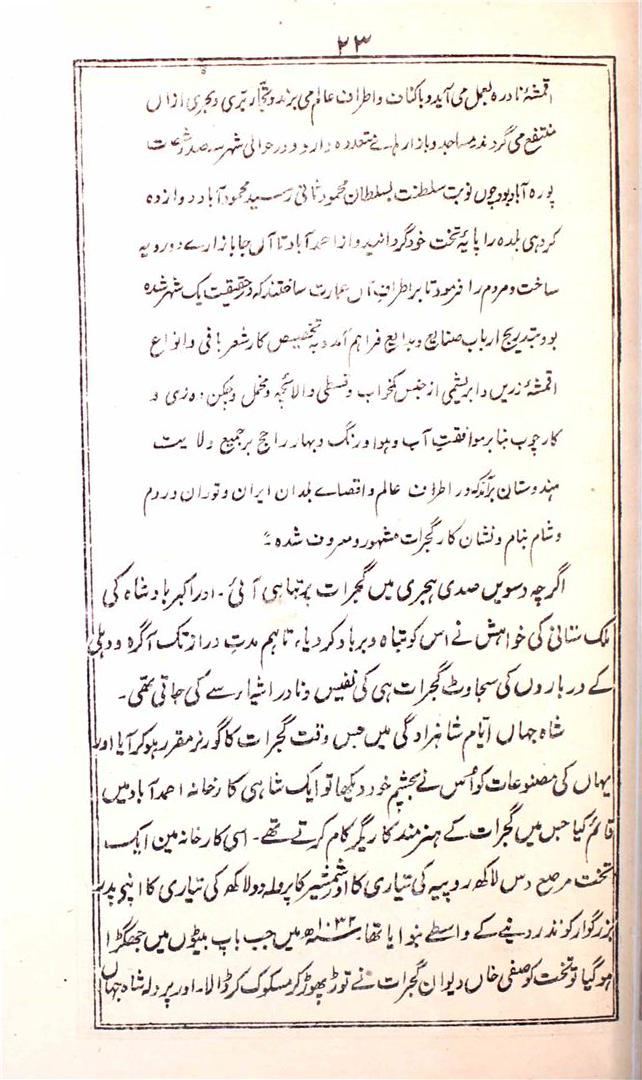 ۲۳
اقمشۂ نادرہ بعمل می آید و باکناف و اطراف عالم می برند و تجار بری و بحری ازاں
منتفع می گردند مساجد و بازار ہائے متعددہ دارد و در حوالی شہر سہ صد و شصت
پورہ آباد بود چوں نوبت سلطنت بسلطان محمود ثانی رسید محمود آباد دوازدہ
کردہی بلدہ را پایۂ تخت خود گردانید و از احمد آباد تا آں جا بازارے دورویہ
ساخت و مردم را فرمود تا بر اطراف آں عمارت ساختند کہ در حقیقت یک شہر شدہ
بود بتدریج ارباب صنایع و بدایع فراہم آمد و بہ تخصیص کار شعر بافی و انواع
اقمشۂ زریں و ابریشمی از جنس کمخواب و قسطی و الائچہ و مخمل و چکن دوزی و
کارچوب بنا بر موافقتِ آب و ہوا و رنگ و بہار راجح بر جمیع ولایت
ہندوستان برآمد کہ در اطراف عالم و اقصاے بلدان ایران و توران و روم
و شام بنام و نشان کار گجرات مشہور و معروف شدہ ۔
اگرچہ دسویں صدی ہجری میں گجرات پر تباہی آئی ۔ اور اکبر بادشاہ کی
ملک ستانی کی خواہش نے اس کو تباہ و برباد کر دیا ، تاہم مدتِ دراز تک آگرہ و دہلی
کے درباروں کی سجاوٹ گجرات ہی کی نفیس و نادر اشیار سے کی جاتی تھی ۔
شاہ جہاں ایّام شاہزادگی میں جس وقت گجرات کا گورنر مقرر ہو کر آیا اور
یہاں کی مصنوعات کو اُس نے بچشمِ خود دیکھا تو ایک شاہی کارخانہ احمد آباد میں
قائم کیا جس میں گجرات کے ہنرمند کاریگر کام کرتے تھے ۔ اسی کارخانہ مین ایک
تخت مرصع دس لاکھ روپیہ کی تیاری کا اور شمشیر کا پرولہ دو لاکھ کی تیاری کا اپنے پدر
بزرگوار کو نذر دینے کے واسطے بنوایا تھا ۔ ۱۰۳۲ھ میں جب باپ بیٹوں میں جھگڑا
ہو گیا تو تخت کو صفی خاں دیوان گجرات نے توڑ پھوڑ کر مسکوک کر ڈالا ۔ اور پردلہ شاہ جہاں